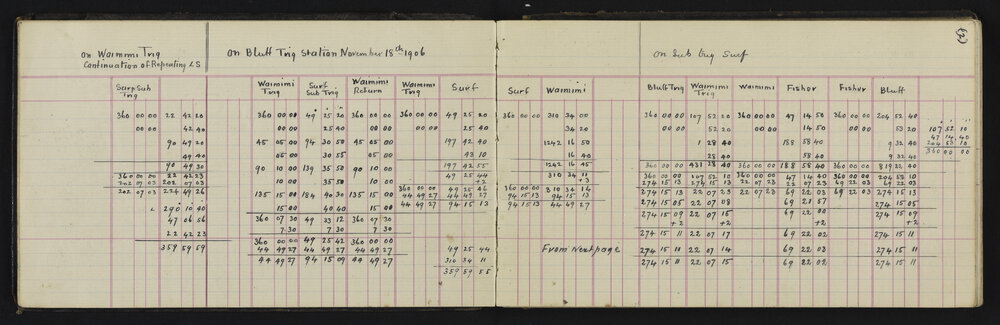 (2)
on Waimimi Trig
Continuation of Repeating LS
on Bluff Trig Station November 18th 1906
on Sub trig Surf
Surf Sub Trig
Waimimi Trig Surf Sub Trig Waimimi Return Waimimi Trig Surf
Surf Waimimi
Bluff Trig Waimimi Trig Waimimi Fisher Fisher Bluff
360 00 00 22 42 20 360 00 00 49 25 20 360 00 00 360 00 00 49 25 20 360 00 00 310 34 00 360 00 00 107 52 20 360 00 00 47 14 50 360 00 00 204 52 40
00 00 42 40 00 00 25 40 00 00 00 00 25 40 34 20 00 00 52 20 00 00 14 50 00 00 53 20
107 52 10
47 14 40
204 53 10
360 00 00
90 49 20 45 05 00 94 30 50 45 05 00 197 42 40 1242 16 50 1 28 40 188 58 40 9 32 40
49 40 05 00 30 55 05 00 43 10 16 40 28 40 58 40 9 32 40
90 49 30 197 42 55 1242 16 45 360 00 00 431 28 40 360 00 00 188 58 40 360 00 00 819 32 40
360 00 00 22 42 23 90 10 00 139 35 50 90 10 00 49 25 44 310 34 11 360 00 00 107 52 10 360 00 00 47 14 40 360 00 00 204 53 10
202 07 03 202 07 03 10 00 35 50 10 00 +2 +3 274 15 13 274 15 13 22 07 23 22 07 23 69 22 03 69 22 03
202 07 03 224 49 26 135 15 00 184 40 30 135 15 00 360 00 00 49 25 46 360 00 00 310 34 14 274 15 13 22 07 23 22 07 23 69 22 03 69 22 03 274 15 13
44 49 27 44 49 27 94 15 13 94 15 13
15 00 40 40 15 00 44 49 27 94 15 13 94 15 13 44 49 27 274 15 05 22 07 08 69 21 57 274 15 05
L 290 10 40
47 06 56 360 07 30 49 33 12 360 07 30 274 15 09 22 07 15 69 22 00 274 15 09
22 42 23 7 30 7 30 +2 +2 +2 +2
359 59 59 360 00 00 49 25 42 360 00 00 274 15 11 22 07 17 69 22 02 274 15 11
44 49 27 44 49 27 44 49 27 49 25 44 From Next page 274 15 11 22 07 14 69 22 03 274 15 11
44 49 27 94 15 09 44 49 27 310 34 11 274 15 11 22 07 15 69 22 02 274 15 11
359 59 55